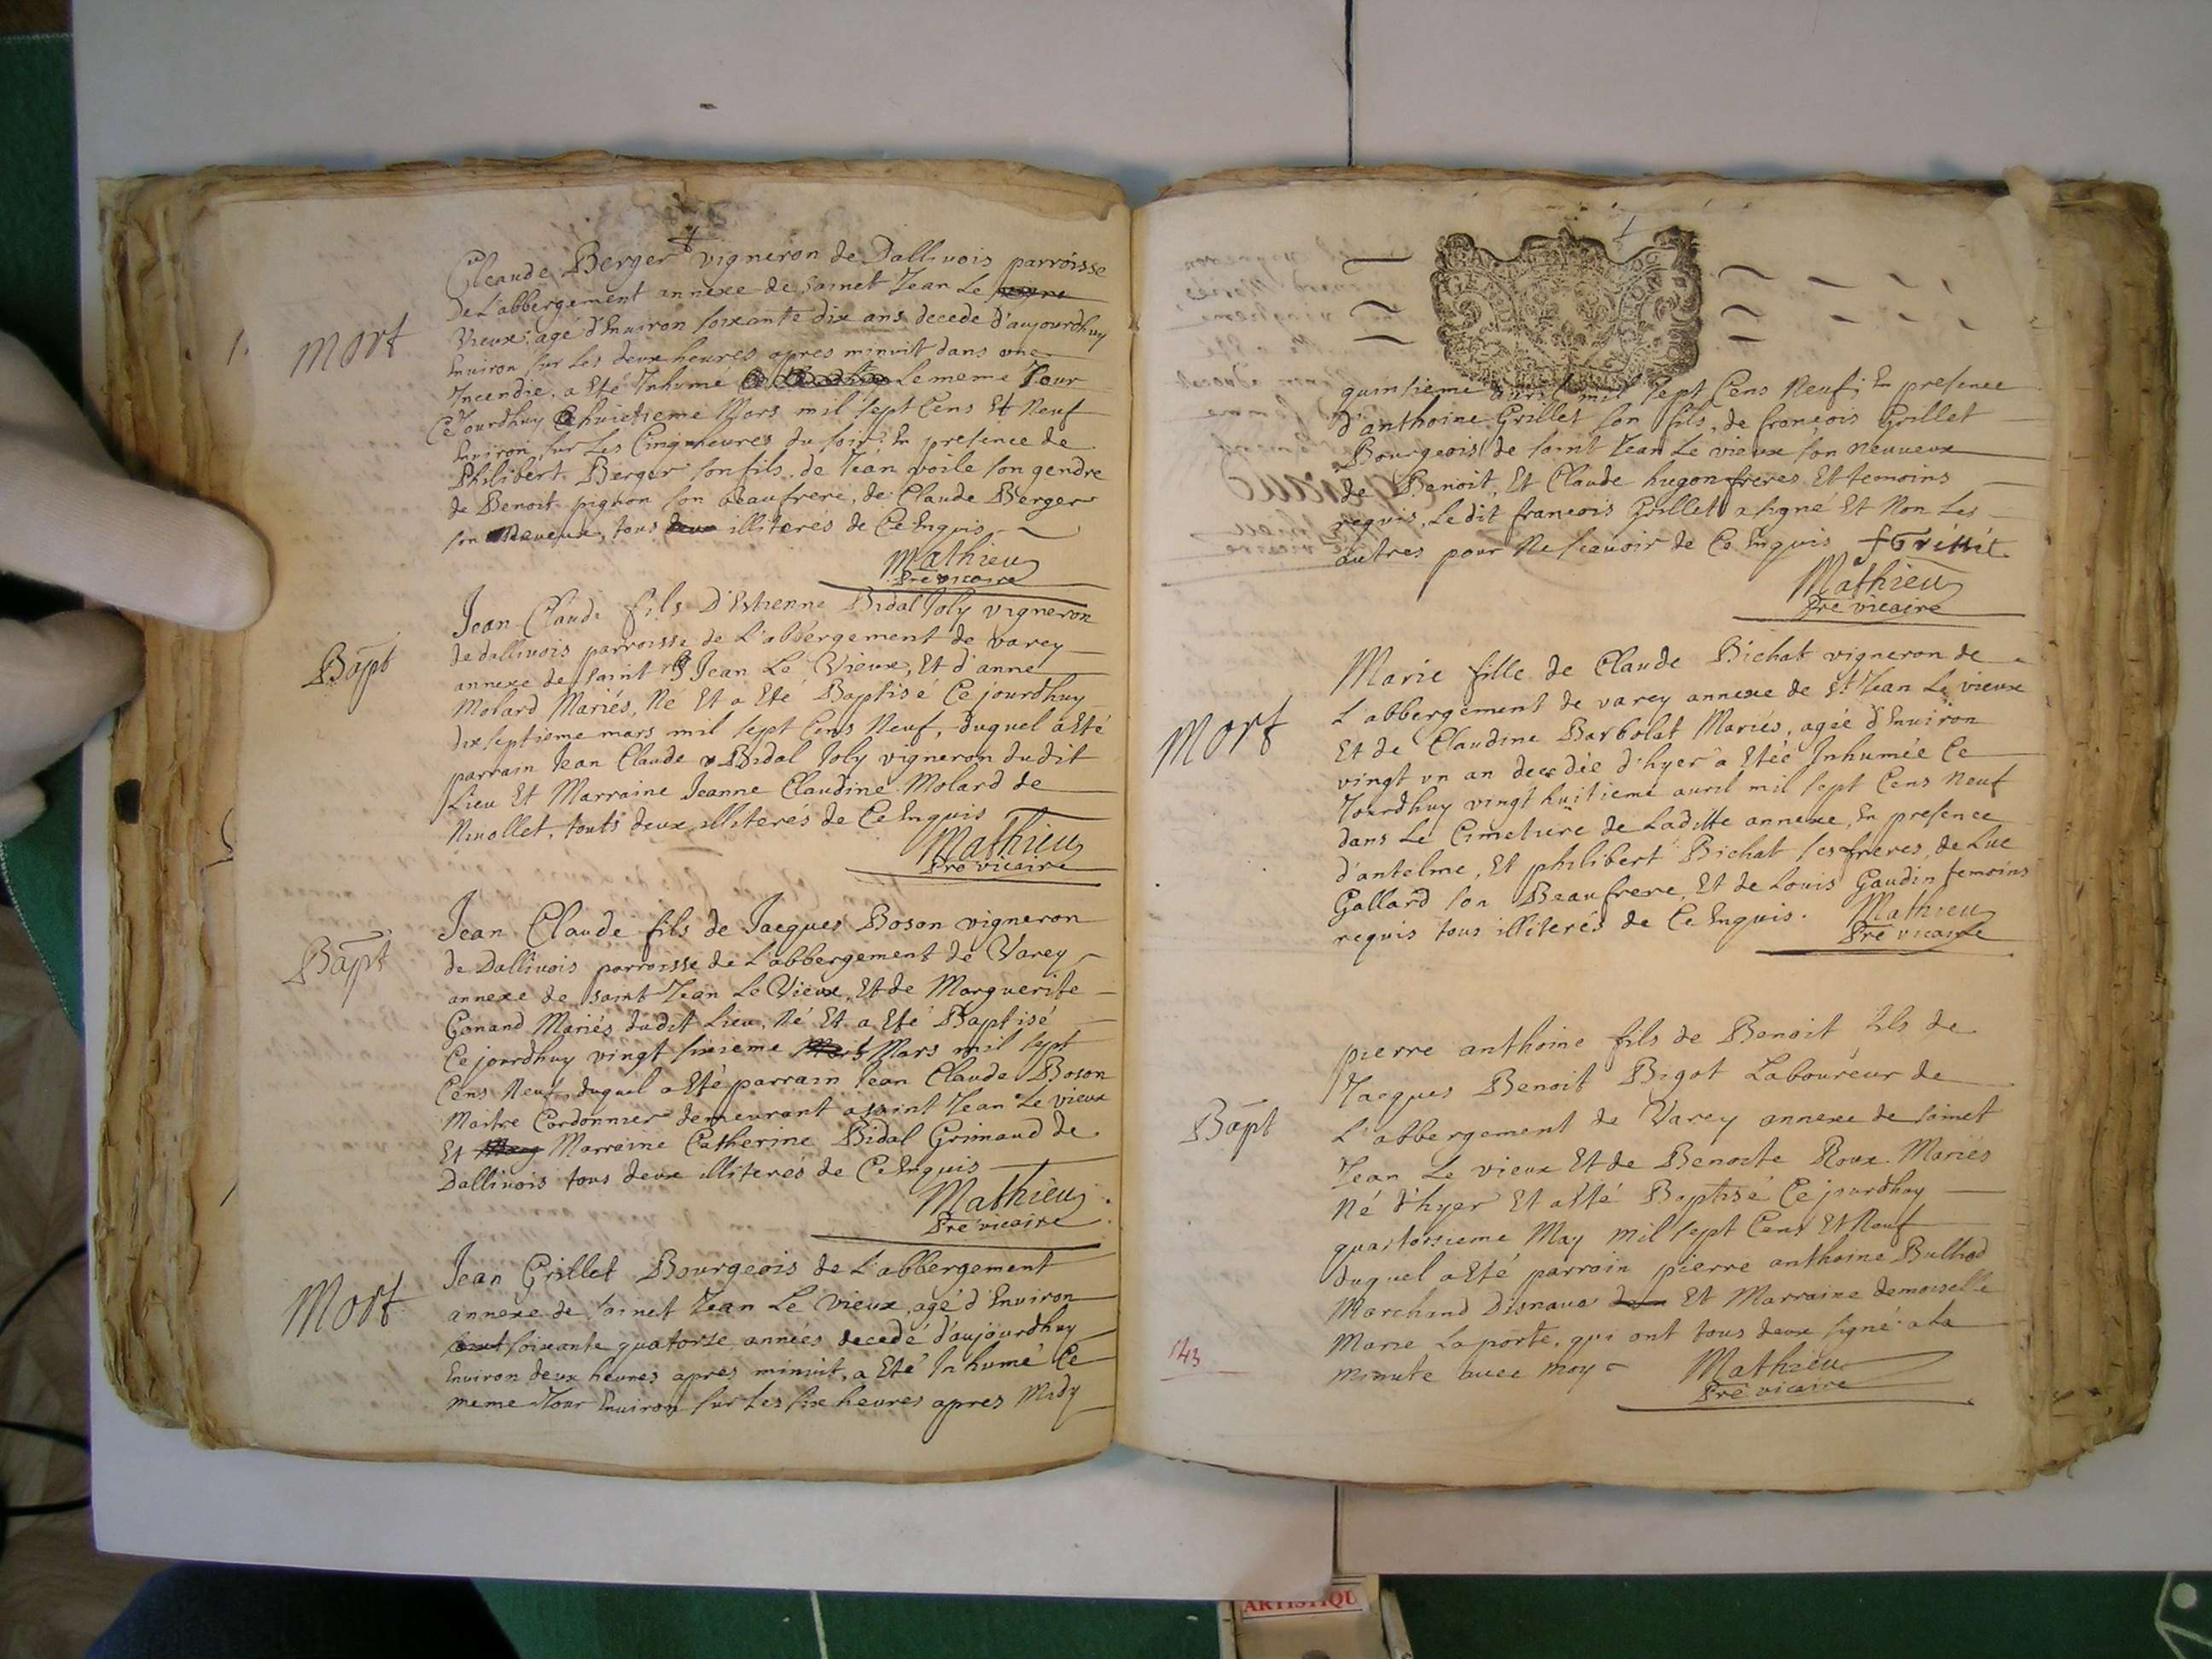 Mort
Cleaude Berger vigneron de Dallivois parroisse
de L'abbergement annexe de sainct Jean Le
Vieux, agé d'Environ soixante dix ans decede d'aujourdhuy
Environ sur Les deux heures apres minuit dans une
Incendie, a Eté Inhumé Le meme Jour
Ce Jourdhuy huictieme Mars mil sept Cens Et Neuf
Environ sur Les Cinq heures du soir: En presence de
Philibert Berger son fils, de Jean voile son gendre
de Benoit pignon son beaufrere, de Claude Berger
son Neveux, tous illiterés de Ce Enquis
Mathieu
Pre vicaire
Bapt
Jean Claude fils D'Estienne Bidal Joly vigneron
de dallivois parroisse de L'abbergement de varey
annexe de saint Jean Le Vieux, Et d'anne
Molard Mariés, Né Et a Eté Baptisé Ce jourdhuy
dix septieme mars mil sept Cens Neuf, duquel a Eté
parrain Jean Claude Bidal Joly vigneron dudit
Lieu Et Marraine Jeanne Claudine Molard de
Nivollet, touts deux illiterés de Ce Enquis
Mathieu
Pre vicaire
Bapt
Jean Claude fils de Jacques Boson vigneron
de Dallivois parroisse de L'abbergement de Varey
annexe de saint Jean Le Vieux, Et de Marguerite
Gonand Mariés dudit Lieu, Né Et a Eté Baptisé
Ce jourdhuy vingt sixieme Mars mil sept
Cens Neuf, duquel a Eté parrain Jean Claude Boson
Maitre Cordonnier demeurant a saint Jean Le vieux
Et Marraine Catherine Bidal Grimaud de
Dallivois tous deux illiterés de Ce Enquis
Mathieu
Pre vicaire
Mort
Jean Grillet Bourgeois de L'abbergement
annexe de sainct Jean Le Vieux, agé d'Environ
soixante quatorze années decedé d'aujourdhuy
Environ deux heures apres minuit, a Eté Inhumé Ce
meme Jour Environ sur Les six heures apres Midy
quinsieme avril mil sept Cens Neuf; En presence
d'anthoine Grillet son fils, de françois Grillet
Bourgeois de saint Jean Le vieux son neuveux
de Benoit, Et Claude hugon freres Et temoins
requis, Le dit francois Grillet a signé Et Non Les
autres pour Ne scauoir de Ce Enquis f Grillet
Mathieu
Pre vicaire
Mort
Marie fille de Claude Bichat vigneron de
L'abbergement de varey annexe de St Jean Le vieux
Et de Claudine Barbolat Mariés, agée d'Environ
vingt un an decedée d'hyer a Etée Inhumée Ce
Jourdhuy vingt huitieme auril mil sept Cens Neuf
dans Le Cimetiere de Laditte annexe, En presence
d'antelme, Et philibert Bichat ses freres, de Luc
Gallard son Beaufrere, Et de Louis Gaudin temoins
requis tous illiterés de Ce Enquis. Mathieu
Pre vicaire
Bapt
pierre anthoine fils de Benoit fils de
Jacques Benoit Bigot Laboureur de
L'abbergement de Varey annexe de sainct
Jean Le vieux Et de Benoite Roux Mariés
Né d'hyer Et a Eté Baptisé Ce jourdhuy
quatorsieme May mil sept Cens Et Neuf
duquel a Eté parrain pierre anthoine
Marchand Et Marraine demoiselle
Marie Laporte, qui ont tous deux signé a La
minute avec moy Mathieu
Pre vicaire
143
ARTISTIQU